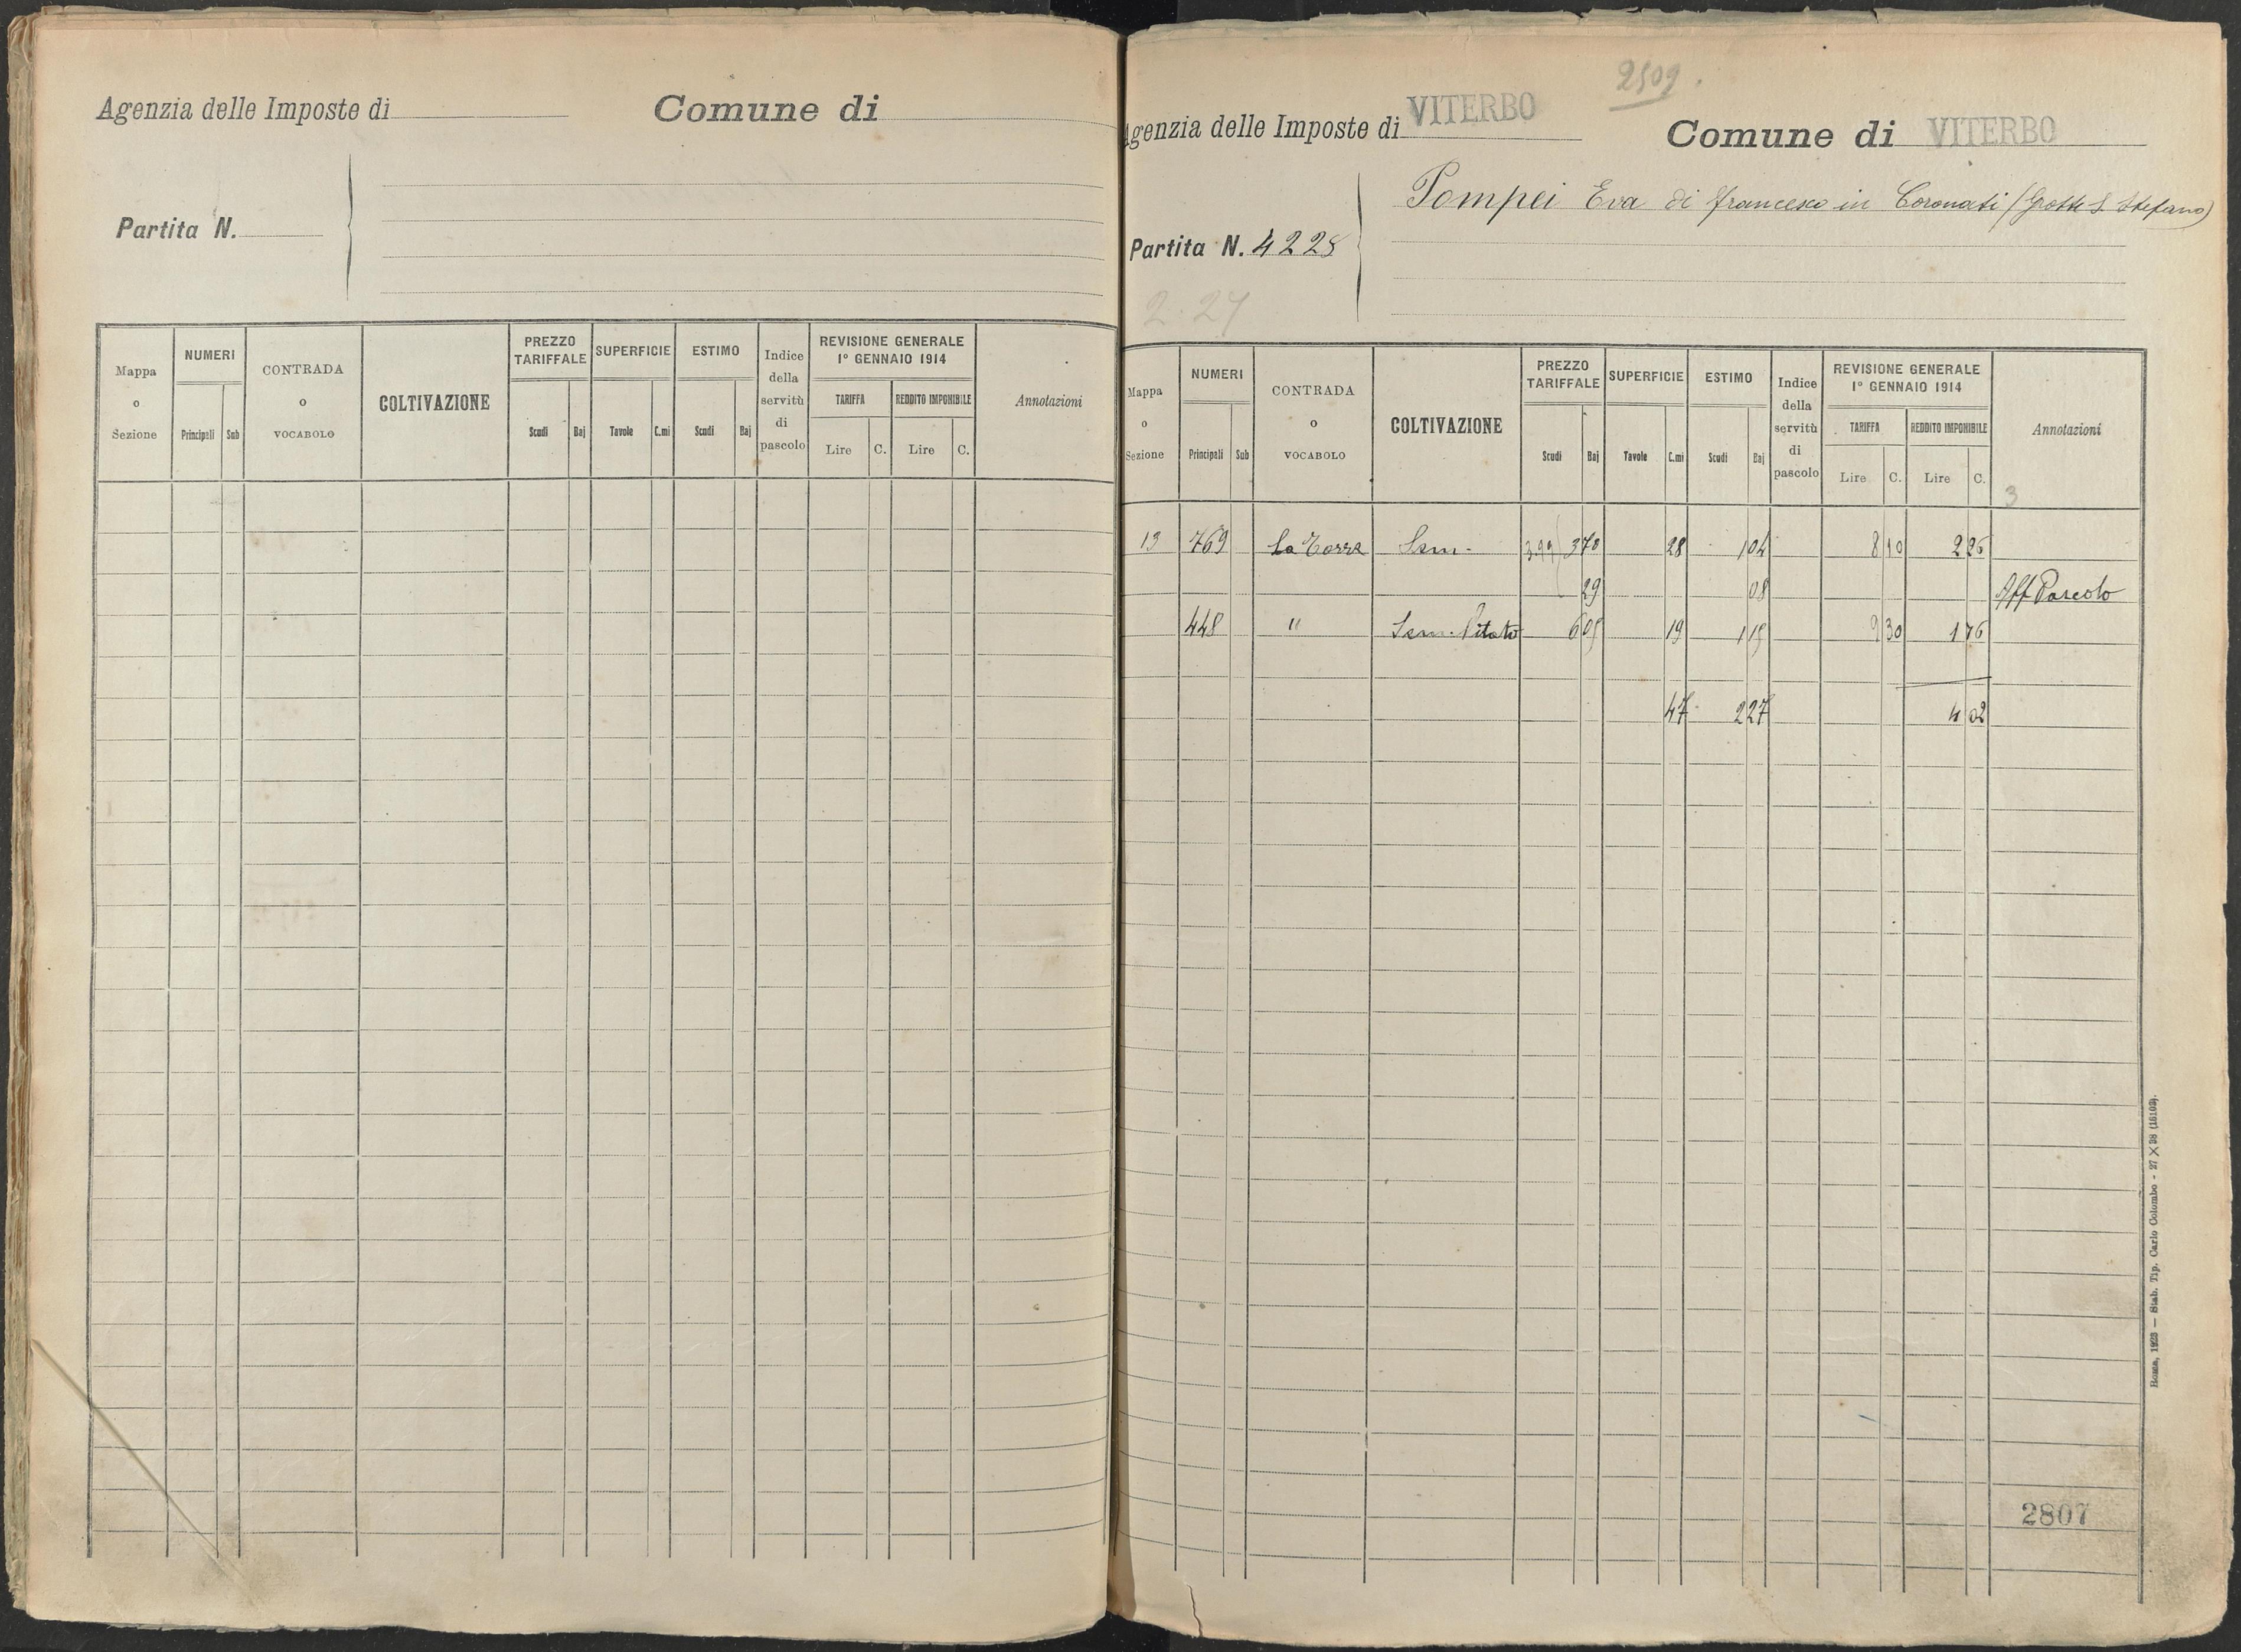 Agenzia delle Imposte di Comune di
Partita N.
Mappa o Sezione
NUMERI
Principali Sub
CONTRADA o VOCABOLO
COLTIVAZIONE
PREZZO TARIFFALE
Scudi Baj
SUPERFICIE
Tavole C.mi
ESTIMO
Scudi Baj
Indice della servitù di pascolo
REVISIONE GENERALE
1° GENNAIO 1914
TARIFFA REDDITO IMPONIBILE
Lire C. Lire C.
Annotazioni
2509.
Agenzia delle Imposte di VITERBO Comune di VITERBO
Pompei Eva di francesco in Coronati (Grotte S. Stefano)
Partita N. 4228
2.27
Mappa o Sezione
NUMERI
Principali Sub
CONTRADA o VOCABOLO
COLTIVAZIONE
PREZZO TARIFFALE
Scudi Baj
SUPERFICIE
Tavole C.mi
ESTIMO
Scudi Baj
Indice della servitù di pascolo
REVISIONE GENERALE
1° GENNAIO 1914
TARIFFA REDDITO IMPONIBILE
Lire C. Lire C.
Annotazioni
3
13 769 La Torre Sem. 3.99 370 28 104 8 10 2 26
29 08 Aff Pascolo
448 " Sem. Vitato 605 19 115 9 30 1 76
47 227 4 02
2807
Roma, 1923 — Stab. Tip. Carlo Colombo - 27 X 38 (16103).